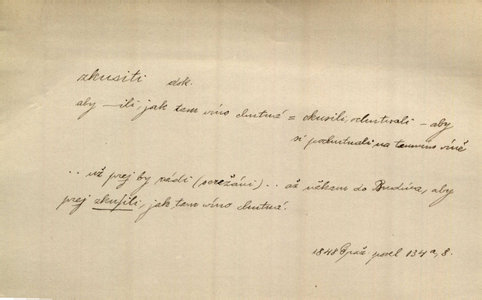 zkusiti dok.
aby —ili, jak tam víno chutná = okusili, ochutnali – aby
si pochutnali na tamním víně
.. už prej by rádi (serežáni) .. až někam do Budína, aby
prej zkusili, jak tam víno chutná.
1848 Praž. posel 134a, 8.